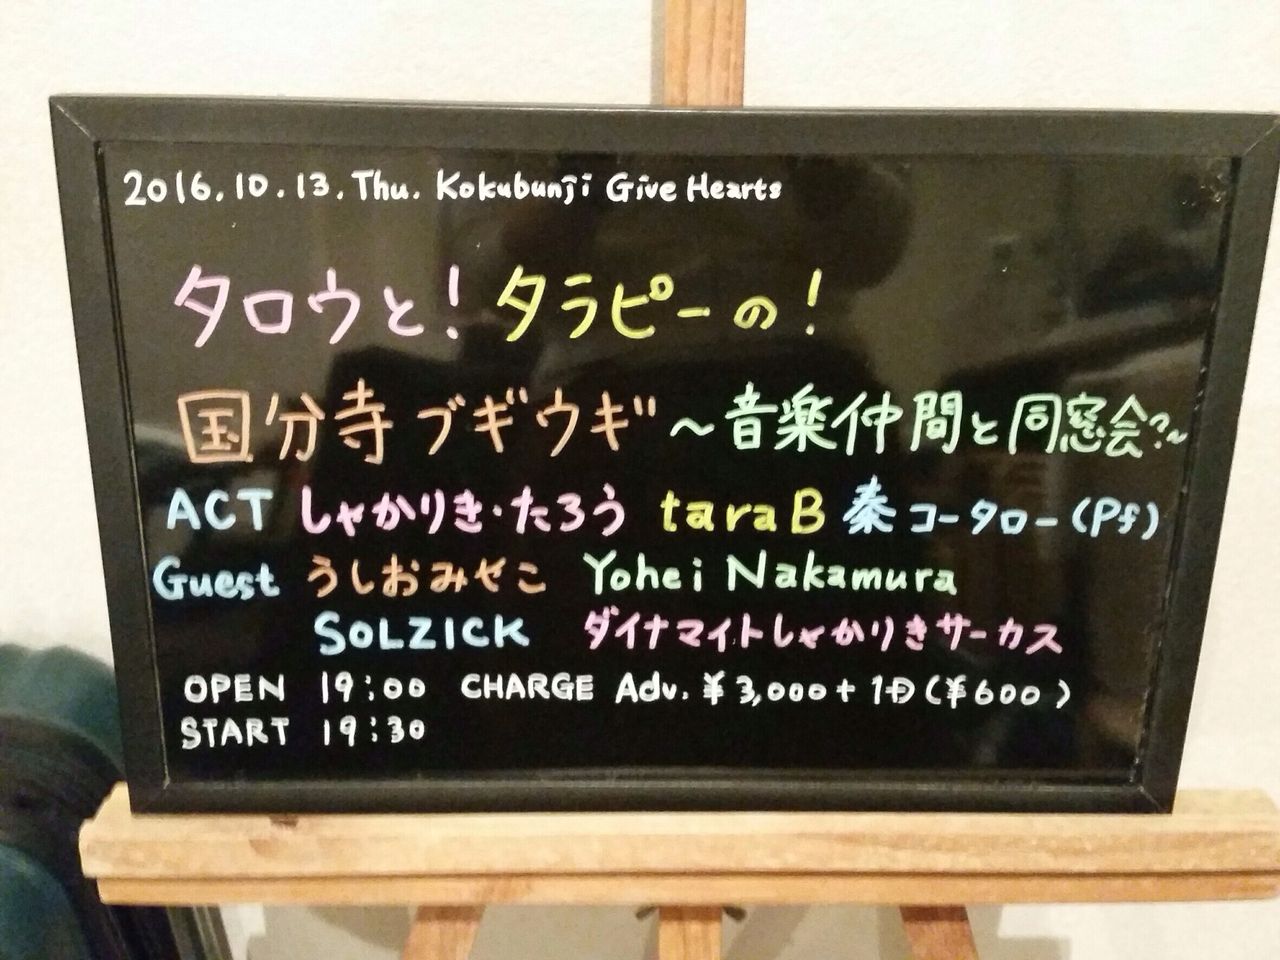 2016.10.13.Thu. Kokubunji Give Hearts
タロウと！タラピーの！
国分寺ブギウギ～音楽仲間と同窓会?～
ACT しゃかりき・たろう taraB 秦コータロー(Pf)
Guest うしおみぜこ Yohei Nakamura
SOLZICK ダイナマイトしゃかりきサーカス
OPEN 19:00 CHARGE Adv. ¥3,000+1D(¥600)
START 19:30